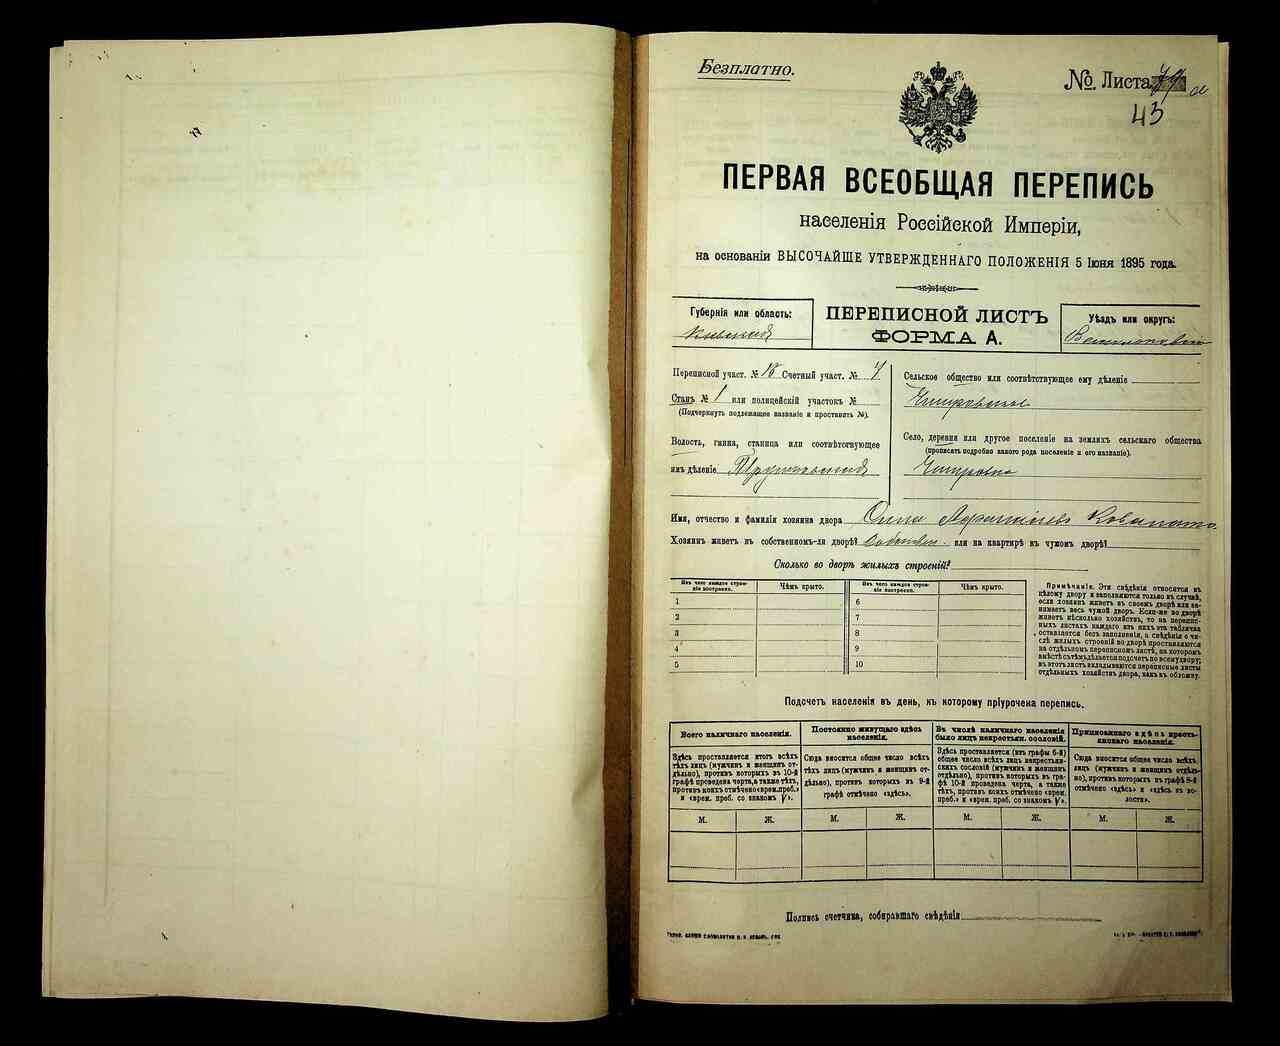 Безплатно.
№ Листа
43
ПЕРВАЯ ВСЕОБЩАЯ ПЕРЕПИСЬ
населенія Россійской Имперіи,
на основаніи ВЫСОЧАЙШЕ УТВЕРЖДЕННАГО ПОЛОЖЕНІЯ 5 Іюня 1895 года.
Губернія или область:
Кіевская
ПЕРЕПИСНОЙ ЛИСТЪ
ФОРМА А.
Уѣздъ или округъ:
Переписной участ. № Счетный участ. № 4
Станъ № 1 или полицейскій участокъ №
(Подчеркнуть подлежащее названіе и проставить №).
Волость, гмина, станица или соотвѣтствующее
имъ дѣленіе
Сельское общество или соотвѣтствующее ему дѣленіе
Село, деревня или другое поселеніе на земляхъ сельскаго общества
(прописать подробно какого рода поселеніе и его названіе).
Имя, отчество и фамилія хозяина двора
Хозяинъ живетъ въ собственномъ-ли дворѣ? или на квартирѣ въ чужомъ дворѣ?
Сколько во дворѣ жилыхъ строеній?
Изъ чего каждое строе-
ніе построено.
Чѣмъ крыто.
Изъ чего каждое строе-
ніе построено.
Чѣмъ крыто.
1
2
3
4
5
6
7
8
9
10
Примѣчаніе. Эти свѣдѣнія относятся къ
цѣлому двору и заполняются только въ случаѣ,
если хозяинъ живетъ въ своемъ дворѣ или за-
нимаетъ весь чужой дворъ. Если-же во дворѣ
живетъ нѣсколько хозяйствъ, то на перепис-
ныхъ листахъ каждаго изъ нихъ эта табличка
оставляется безъ заполненія, а свѣдѣнія о чи-
слѣ жилыхъ строеній во дворѣ проставляются
на отдѣльномъ переписномъ листѣ, на которомъ
вмѣстѣ съ тѣмъ дѣлается подсчетъ по всему двору;
въ этотъ листъ вкладываются переписные листы
отдѣльныхъ хозяйствъ двора, какъ въ обложку.
Подсчетъ населенія въ день, къ которому пріурочена перепись.
Всего наличнаго населенія.
Здѣсь проставляется итогъ всѣхъ
тѣхъ лицъ (мужчинъ и женщинъ от-
дѣльно), противъ которыхъ въ 10-й
графѣ проведена черта, а также тѣхъ,
противъ коихъ отмѣчено «врем. преб.»
и «врем. преб. со знакомъ V».
Постоянно живущаго здѣсь
населенія.
Сюда вносится общее число всѣхъ
тѣхъ лицъ (мужчинъ и женщинъ от-
дѣльно), противъ которыхъ въ 9-й
графѣ отмѣчено «здѣсь».
Въ числѣ наличнаго населенія
было лицъ некрестьян. сословій.
Здѣсь проставляется (изъ графы 6-й)
общее число всѣхъ лицъ некрестьян-
скихъ сословій (мужчинъ и женщинъ
отдѣльно), противъ которыхъ въ гра-
фѣ 10-й проведена черта, а также
тѣхъ, противъ коихъ отмѣчено «врем.
преб.» и «врем. преб. со знакомъ V».
Приписаннаго здѣсь кресть-
янскаго населенія.
Сюда вносится общее число всѣхъ
лицъ (мужчинъ и женщинъ отдѣль-
но), противъ которыхъ въ графѣ 8-й
отмѣчено «здѣсь» и «здѣсь въ во-
лости».
М. Ж. М. Ж. М. Ж. М. Ж.
Подпись счетчика, собиравшаго свѣдѣнія